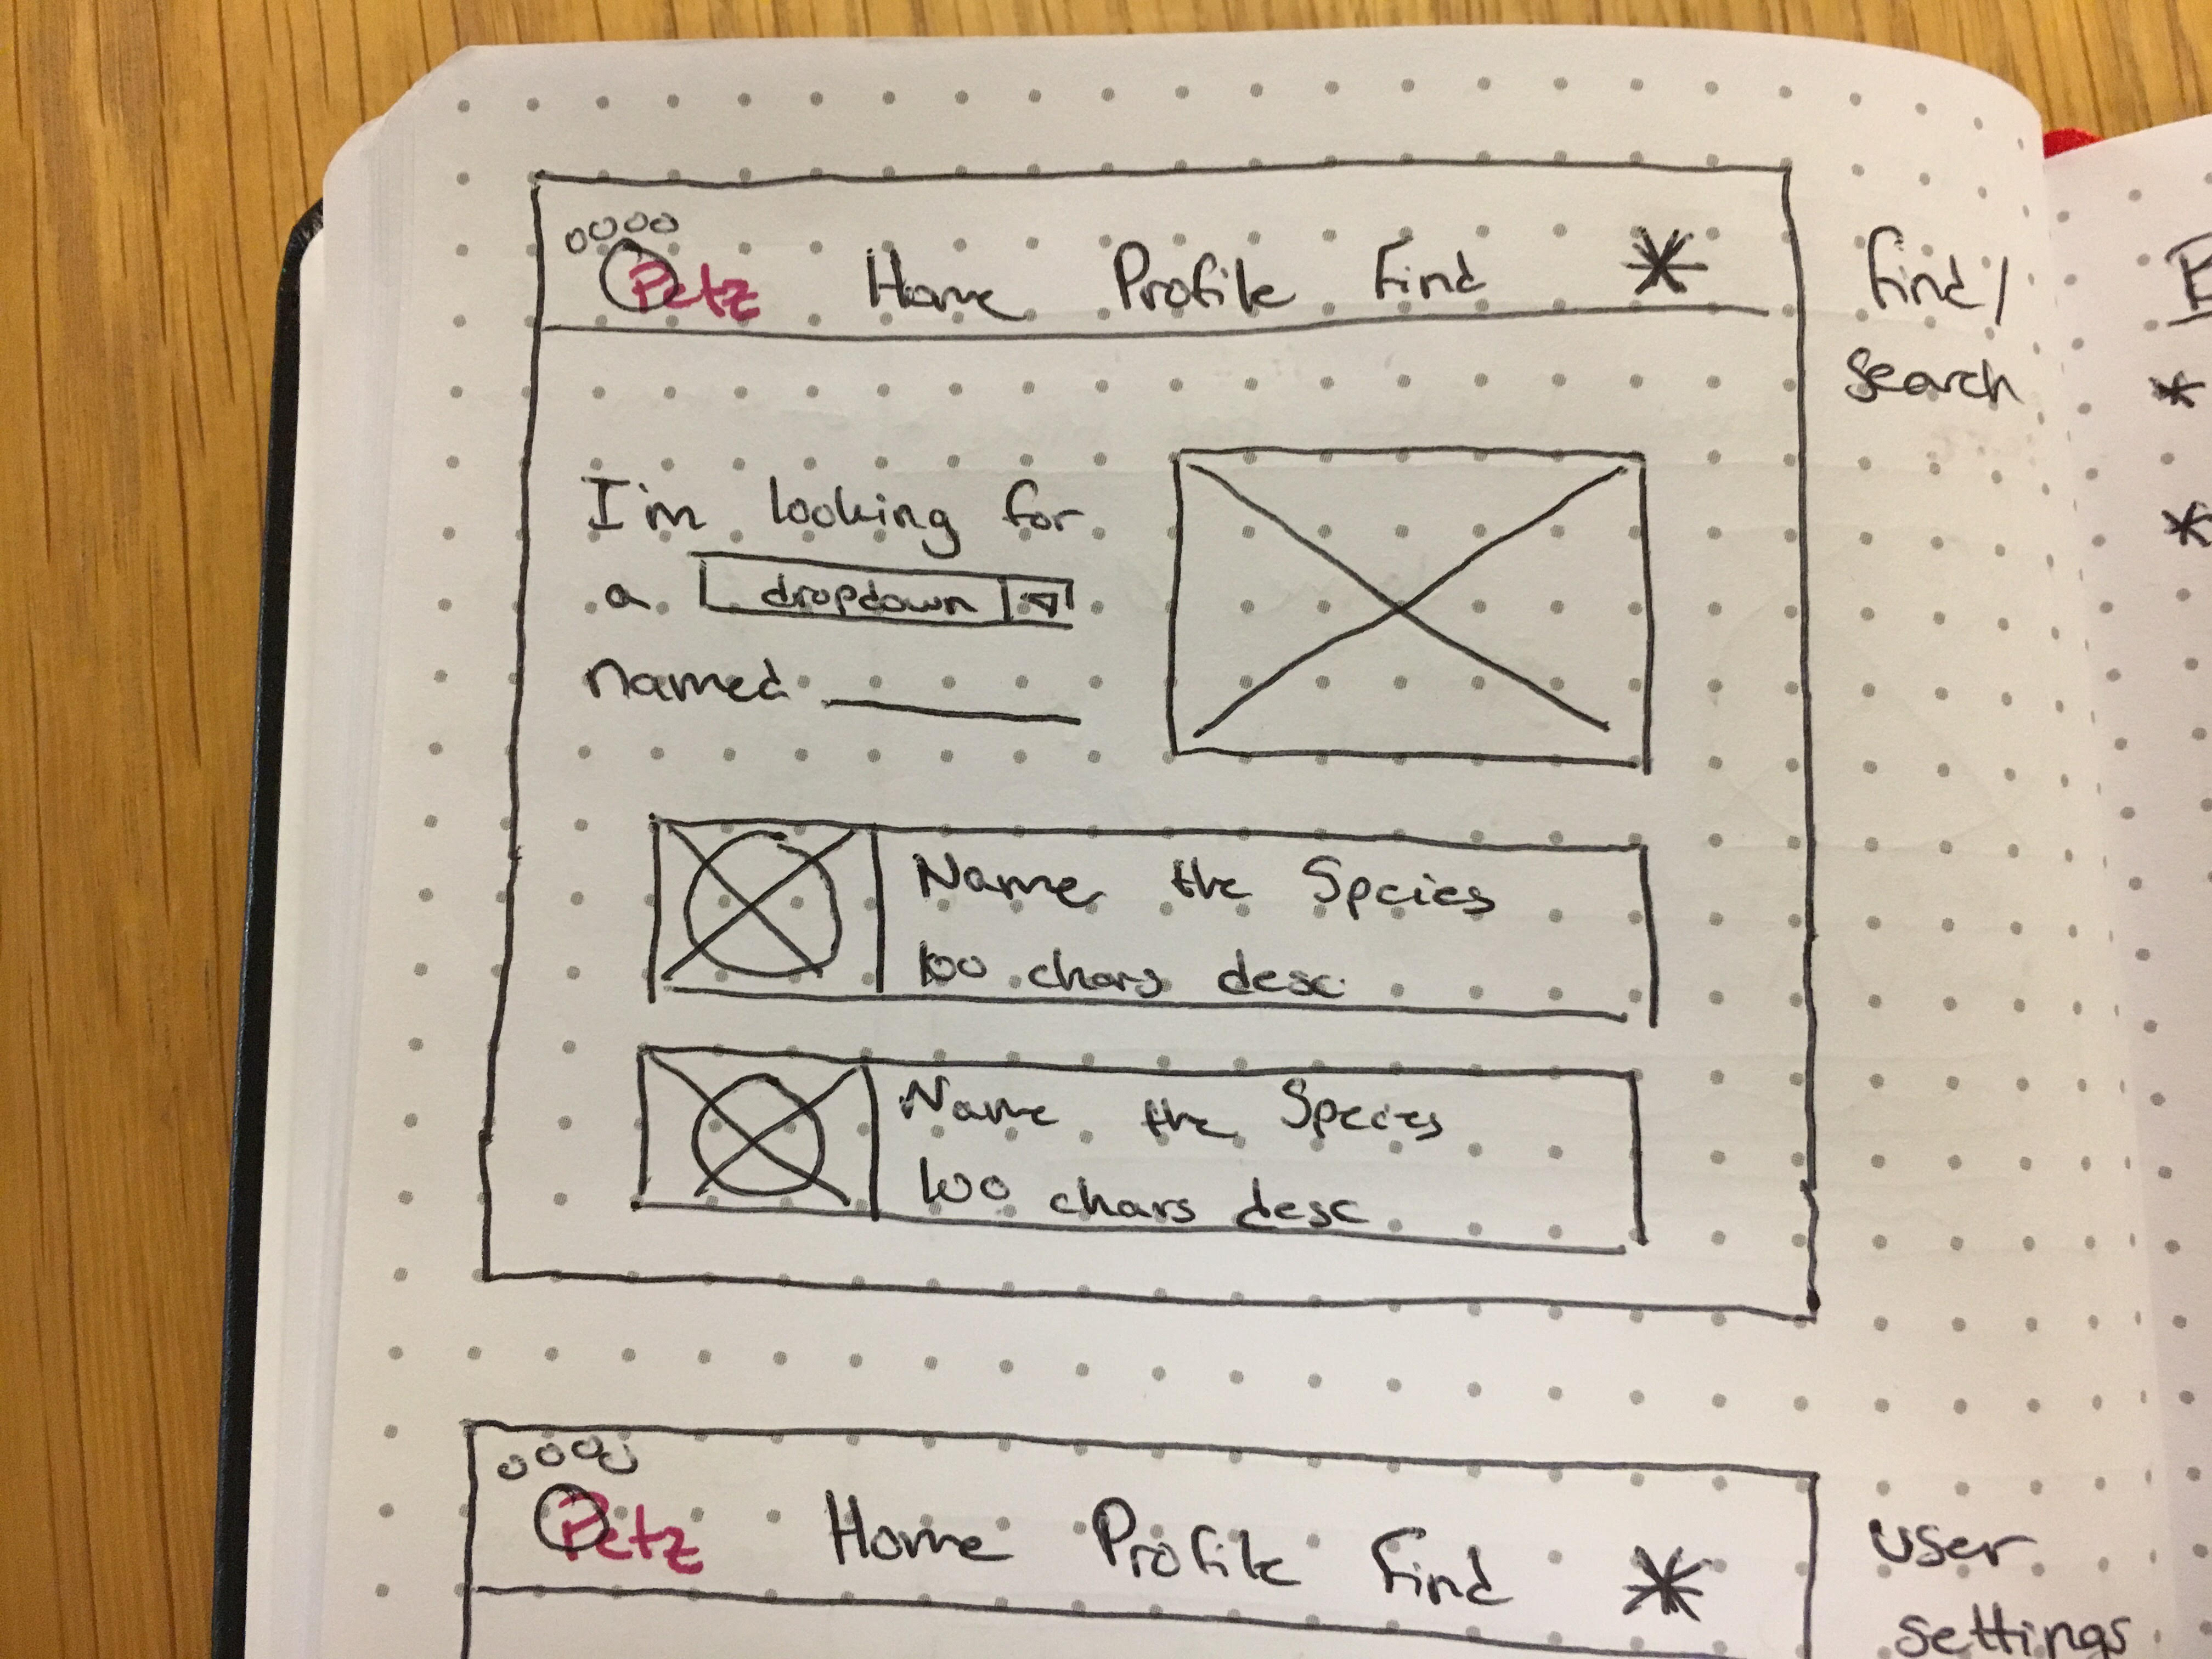 Petz Home Profile Find *
Find/
Search
I'm looking for
a dropdown
named
Name the Species
100 chars desc
Name the Species
100 chars desc
Petz Home Profile Find *
user
settings
*
*